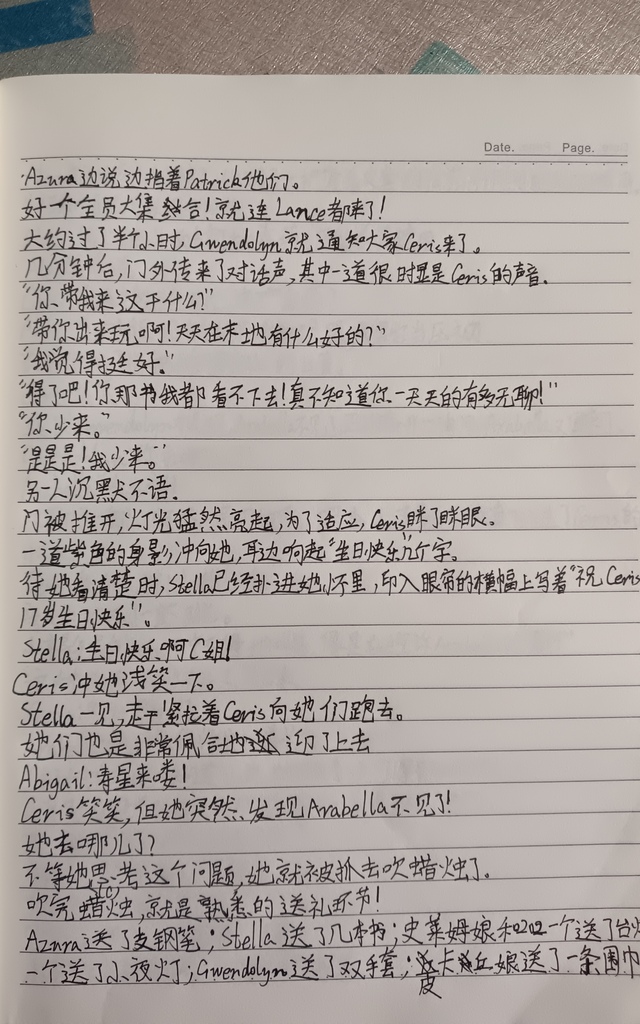 Date. Page.
Azura边说边指着Patrick他们。
好一个全员大集结合！就连Lance都来了！
大约过了半个小时，Gwendolyn就通知大家Ceris来了。
几分钟后，门外传来了对话声，其中一道很明显是Ceris的声音。
“你带我来这干什么？”
“带你出来玩啊！天天在本地有什么好的？”
“我觉得挺好。”
“得了吧！你那书我都看不下去！真不知道你一天天的有多无聊！”
“你少来。”
“是是是！我少来。”
另一人沉默不语。
门被推开，灯光猛然亮起，为了适应，Ceris眯了眯眼。
一道紫色的身影冲向她，耳边响起“生日快乐”几个字。
待她看清楚时，Stella已经扑进她怀里，印入眼帘的横幅上写着“祝Ceris
17岁生日快乐”。
Stella：生日快乐啊C姐！
Ceris冲她浅笑一下。
Stella一见，走于紧拉着Ceris向她们跑去。
她们也是非常佩合地迎了上去
Abigail：寿星来喽！
Ceris笑笑，但她突然发现Arabella不见了！
她去哪儿了？
不等她思考这个问题，她就被抓去吹蜡烛了。
吹完蜡烛，就是熟悉的送礼环节！
Azura送了支钢笔；Stella送了几本书；史莱姆娘和0202一个送了台
一个送了小夜灯；Gwendolyn送了双手套；皮卡丘娘送了一条围巾